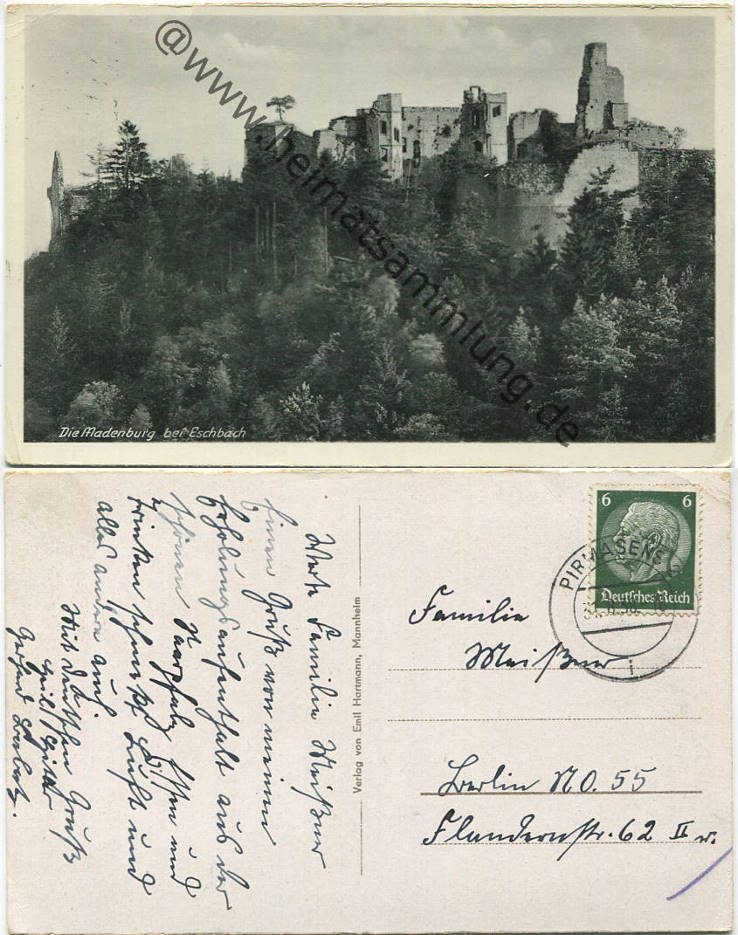 @www.heimatsammlung.de
Die Madenburg bei Eschbach
Werte Familie Meißner
Einen Gruß von meinem
Erholungsaufenthalt aus der
schönen Saarpfalz. Essen und
trinken schmeckt Luft und
alles andre auch.
Mit deutschen Gruß
Heil Hitler
Gerhard
Verlag von Emil Hartmann, Mannheim
6 6
Deutsches Reich
PIRMASENS
i
Familie
Meißner
Berlin NO. 55
Flandernstr. 62 II v.